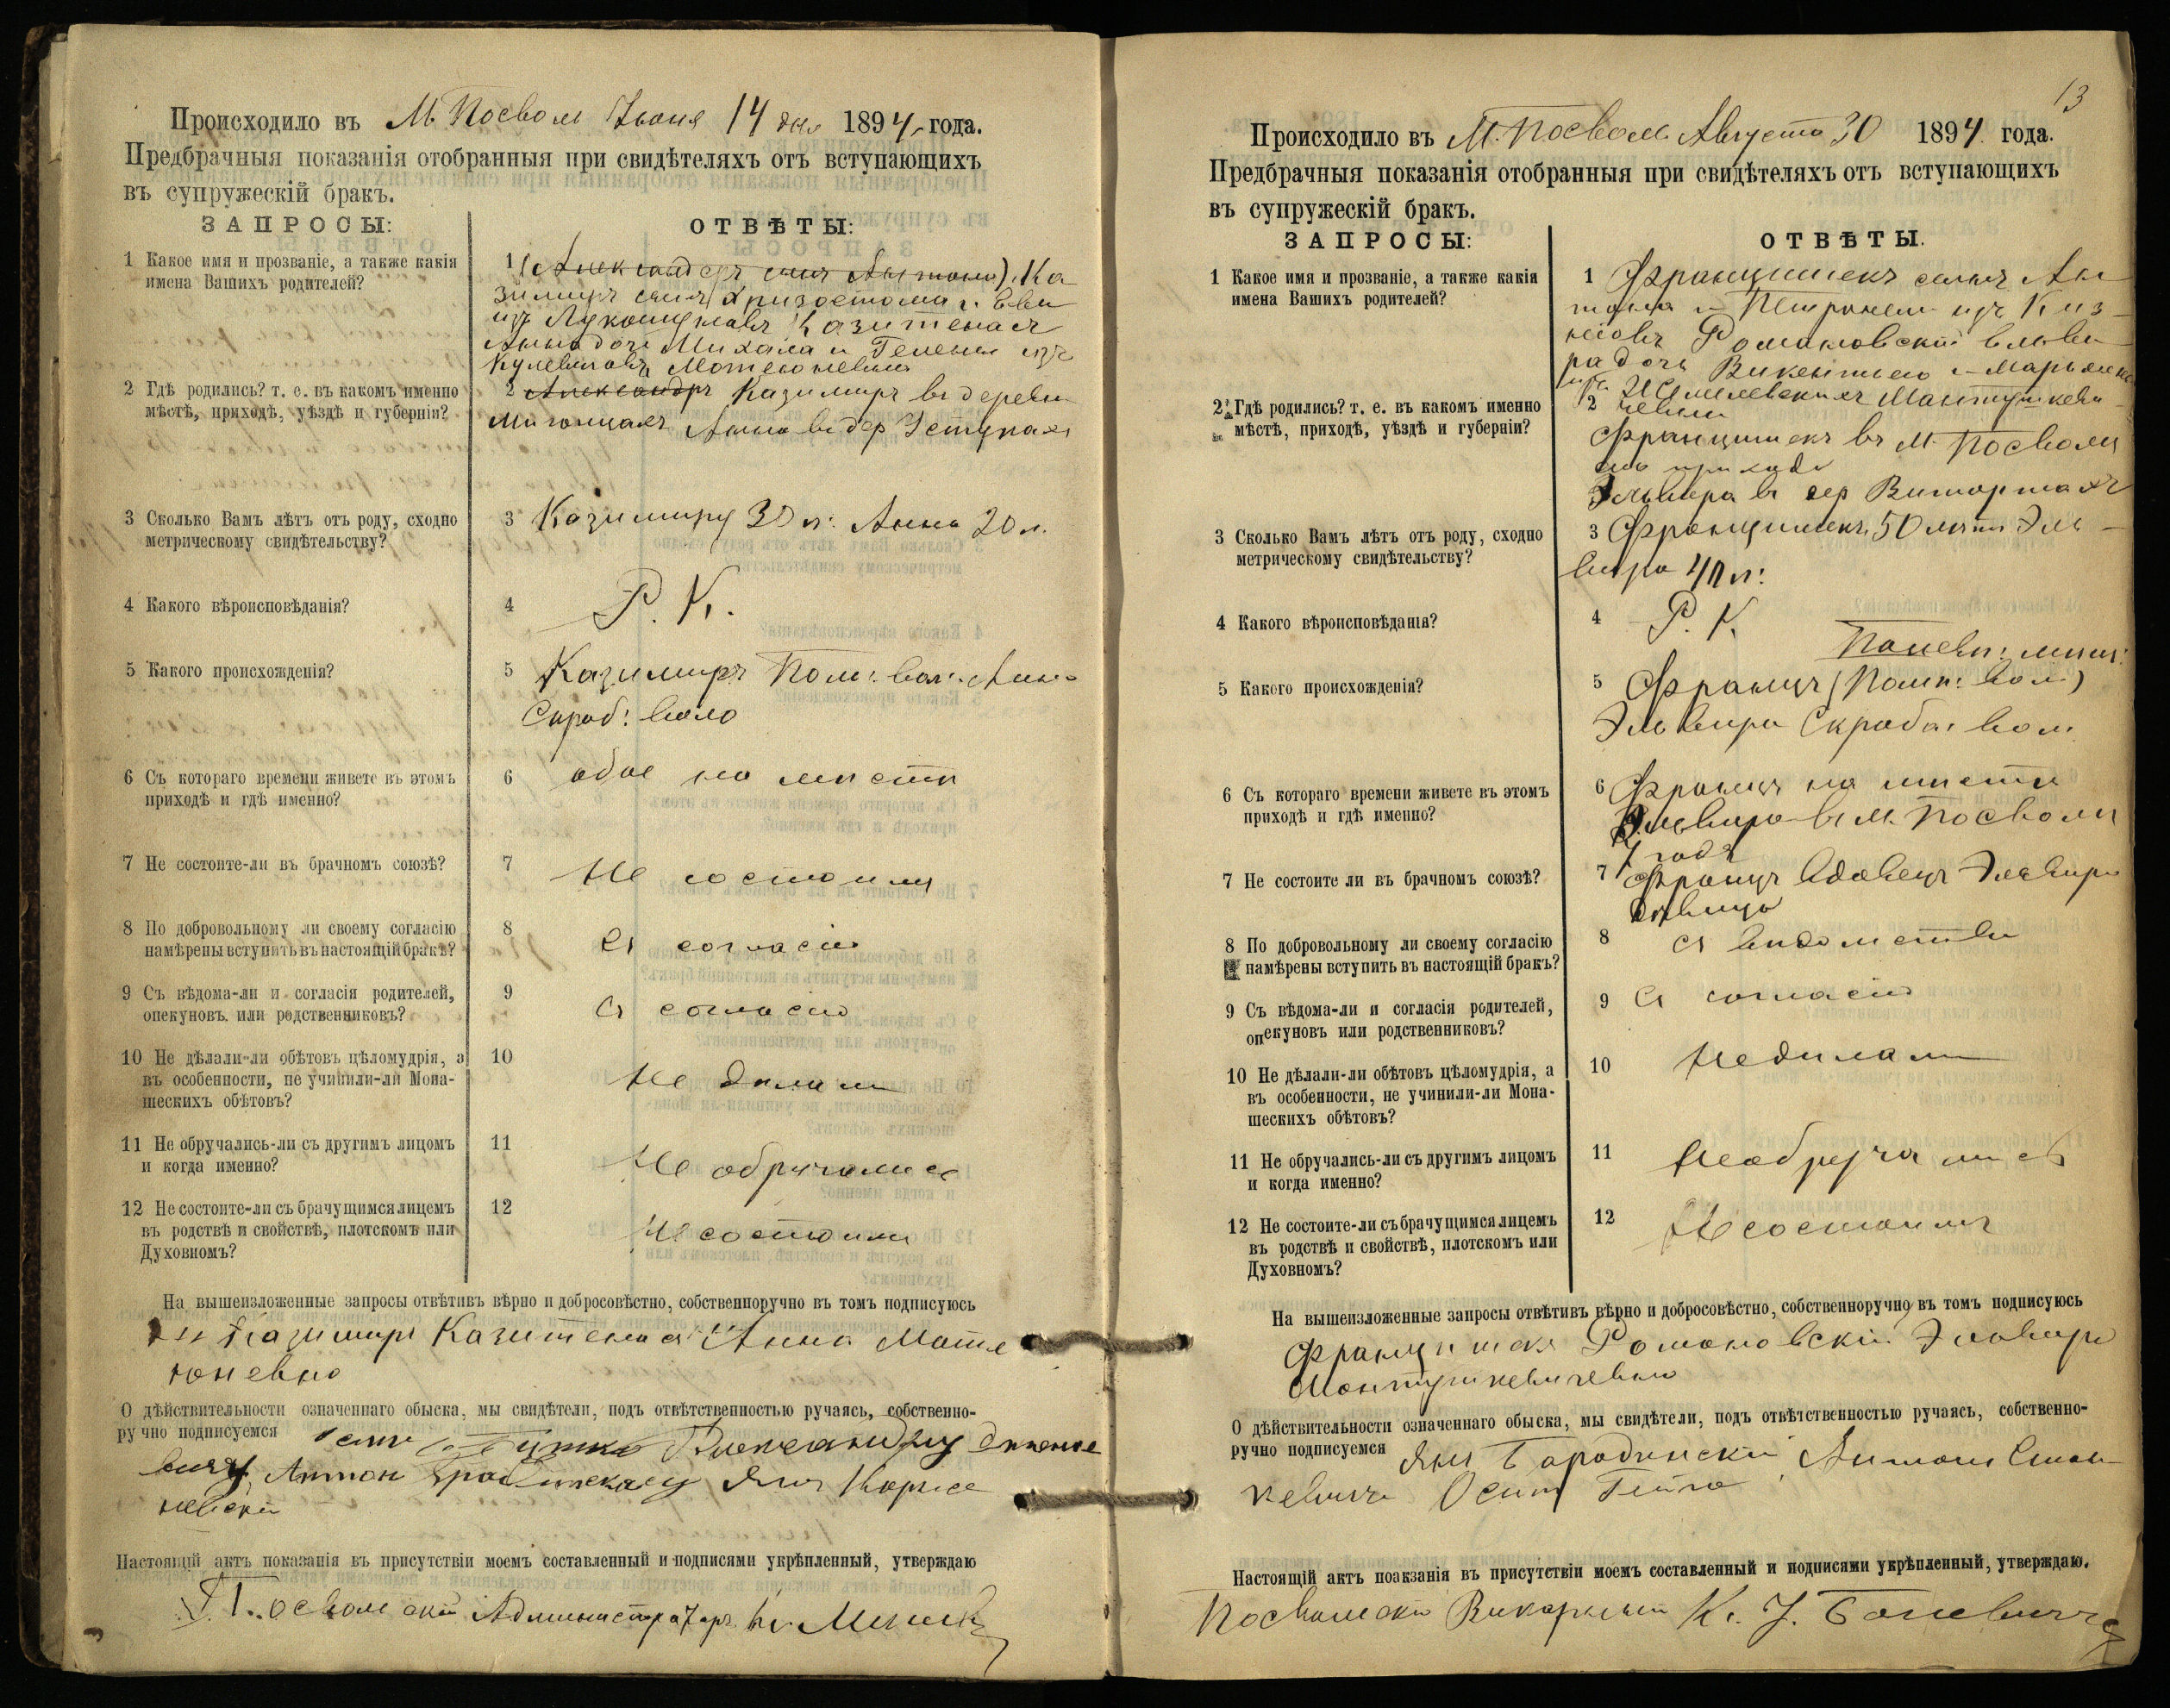 Происходило въ М. Посволь Іюня 14 дня 1894 года.
Предбрачныя показанія отобранныя при свидѣтеляхъ отъ вступающихъ
въ супружескій бракъ.
ЗАПРОСЫ:
ОТВѢТЫ:
1 Какое имя и прозваніе, а также какія
имена Вашихъ родителей?
1 (Александеръ сынъ Антона) Ка
зимиръ сынъ Хризостома и Евы
изъ Казитенасъ
Анна дочь Михала и Гелены изъ
2 Гдѣ родились? т. е. въ какомъ именно
мѣстѣ, приходѣ, уѣздѣ и губерніи?
2 Александръ Казимиръ въ деревни
Анна въ дер
3 Сколько Вамъ лѣтъ отъ роду, сходно
метрическому свидѣтельству?
3 Казимиру 30 л: Анна 20 л.
4 Какого вѣроисповѣданія?
4 Р. К.
5 Какого происхожденія?
5 Казимиръ вол: Анна
Скраб: воло
6 Съ котораго времени живете въ этомъ
приходѣ и гдѣ именно?
6 обое на мисти
7 Не состоите-ли въ брачномъ союзѣ?
7 Не состоили
8 По добровольному ли своему согласію
намѣрены вступить въ настоящій бракъ?
8 Съ согласію
9 Съ вѣдома-ли и согласія родителей,
опекуновъ или родственниковъ?
9 Съ согласію
10 Не дѣлали-ли обѣтовъ цѣломудрія, а
въ особенности, не учинили-ли Мона-
шескихъ обѣтовъ?
10 Не дилали
11 Не обручались-ли съ другимъ лицомъ
и когда именно?
11 Не обручались
12 Не состоите-ли съ брачущимся лицемъ
въ родствѣ и свойствѣ, плотскомъ или
Духовномъ?
12 Несостоили
На вышеизложенные запросы отвѣтивъ вѣрно и добросовѣстно, собственноручно въ томъ подписуюсь
Казимиръ Казитенасъ Анна Мате
юневно
О дѣйствительности означеннаго обыска, мы свидѣтели, подъ отвѣтственностью ручаясь, собственно-
ручно подписуемся
Антон Янъ
Настоящій актъ показанія въ присутствіи моемъ составленный и подписями укрѣпленный, утверждаю
Посвольскій Администраторъ Кс.
13
Происходило въ М. Посволь Августа 30 1894 года.
Предбрачныя показанія отобранныя при свидѣтеляхъ отъ вступающихъ
въ супружескій бракъ.
ЗАПРОСЫ:
ОТВѢТЫ.
1 Какое имя и прозваніе, а также какія
имена Вашихъ родителей?
1 Францишекъ сынъ Ан
тона и Петронели изъ Киз-
Романовскій Эльви
ра дочь Викентіего и Марьянны
изъ
2 Гдѣ родились? т. е. въ какомъ именно
мѣстѣ, приходѣ, уѣздѣ и губерніи?
2 Францишекъ въ М. Посволи
приходи
Эльвира въ дер
3 Сколько Вамъ лѣтъ отъ роду, сходно
метрическому свидѣтельству?
3 Францишекъ 50 литъ Эль-
вира 40 л:
4 Какого вѣроисповѣданія?
4 Р. К.
5 Какого происхожденія?
Понев: мищ:
5 Францъ вол)
Эльвира Скраба: вол.
6 Съ котораго времени живете въ этомъ
приходѣ и гдѣ именно?
6 Францъ на мисти
Эльвира въ М. Посволи
7 Не состоите ли въ брачномъ союзѣ?
7 Францъ вдовецъ Эльвира
дивица
8 По добровольному ли своему согласію
намѣрены вступить въ настоящій бракъ?
8 Съ
9 Съ вѣдома-ли и согласія родителей,
опекуновъ или родственниковъ?
9 Съ согласію
10 Не дѣлали-ли обѣтовъ цѣломудрія, а
въ особенности, не учинили-ли Мона-
шескихъ обѣтовъ?
10 Недилали
11 Не обручались-ли съ другимъ лицомъ
и когда именно?
11 Необручались
12 Не состоите-ли съ брачущимся лицемъ
въ родствѣ и свойствѣ, плотскомъ или
Духовномъ?
12 Несостоимъ
На вышеизложенные запросы отвѣтивъ вѣрно и добросовѣстно, собственноручно въ томъ подписуюсь
Францишекъ Романовскій Эльвира
Монтушкевичевно
О дѣйствительности означеннаго обыска, мы свидѣтели, подъ отвѣтственностью ручаясь, собственно-
ручно подписуемся Янъ Бородинскій Антонъ Стан-
кевичъ Осипъ
Настоящій актъ поакзанія въ присутствіи моемъ составленный и подписями укрѣпленный, утверждаю.
Посвольскій Викарный Кс. І.